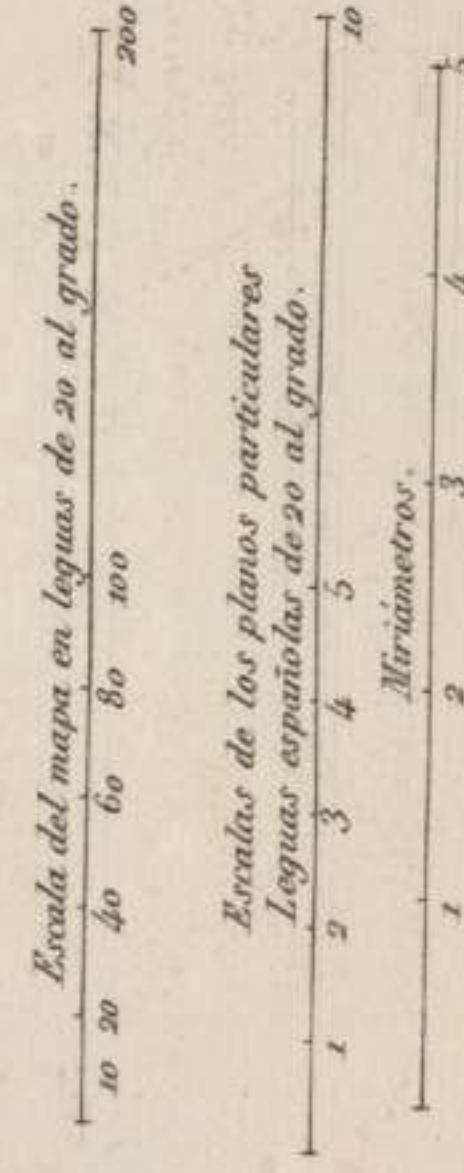 Escala del mapa en leguas de 20 al grado.
10 20 40 60 80 100 200
Escalas de los planos particulares
Leguas españolas de 20 al grado.
1 2 3 4 5 10
Miriámetros.
1 2 3 4 5